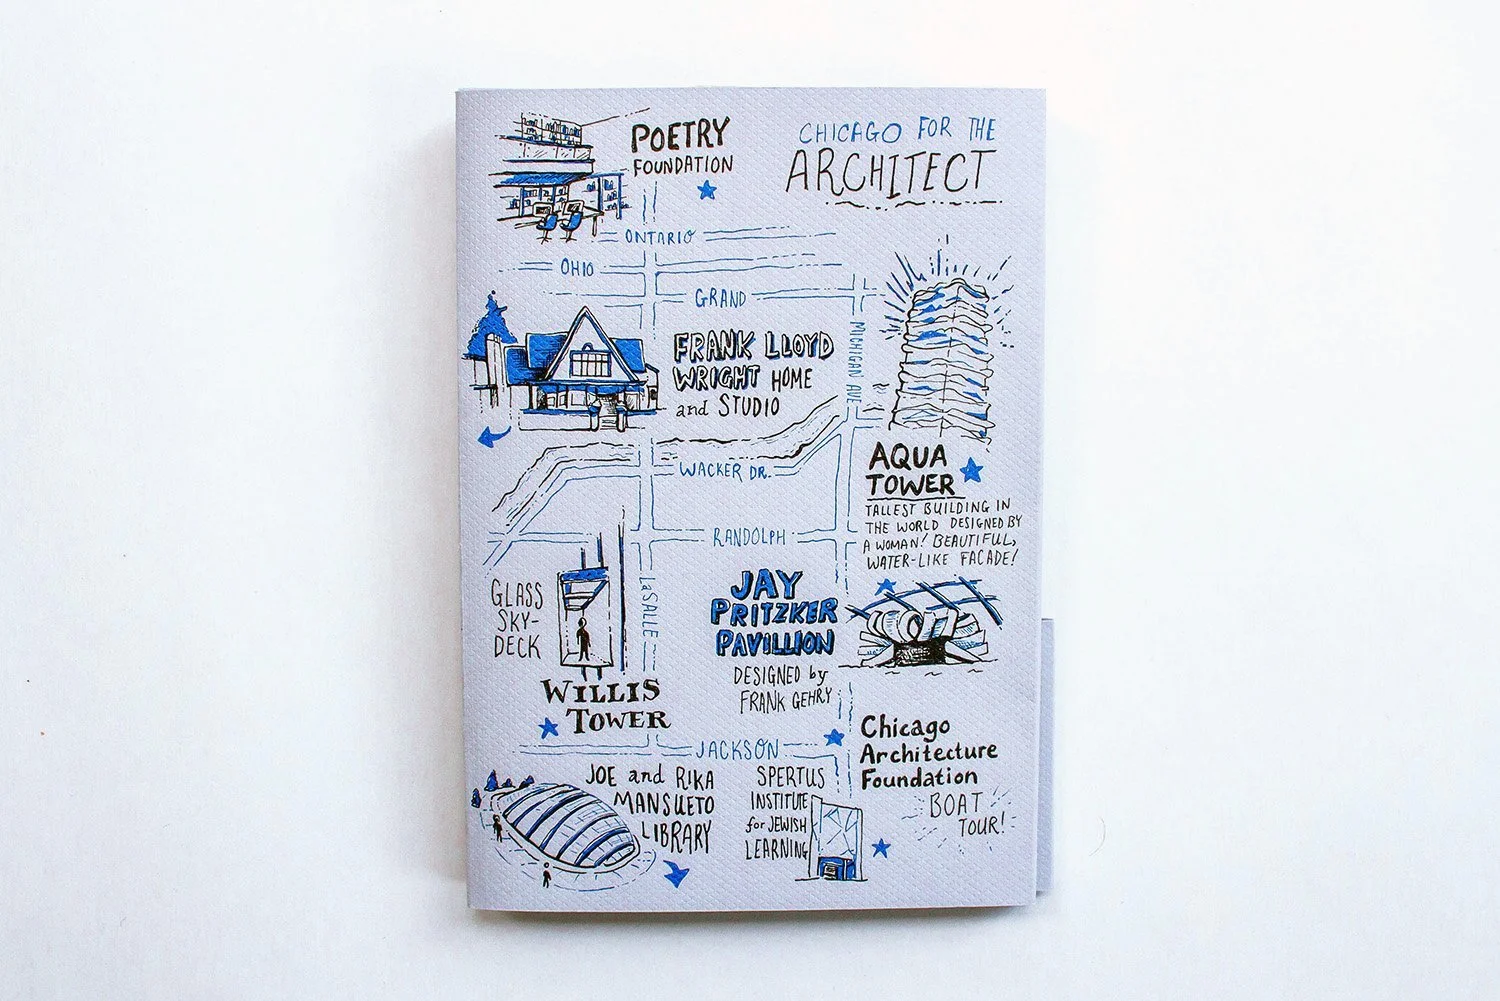 POETRY
FOUNDATION
CHICAGO FOR THE
ARCHITECT
ONTARIO
OHIO
GRAND
MICHIGAN AVE
FRANK LLOYD
WRIGHT HOME
and STUDIO
WACKER DR.
AQUA
TOWER
TALLEST BUILDING IN
THE WORLD DESIGNED BY
A WOMAN! BEAUTIFUL,
WATER-LIKE FACADE!
RANDOLPH
GLASS
SKY-
DECK
LaSALLE
WILLIS
TOWER
JAY
PRITZKER
PAVILLION
DESIGNED by
FRANK GEHRY
JACKSON
Chicago
Architecture
Foundation
BOAT
TOUR!
JOE and RIKA
MANSUETO
LIBRARY
SPERTUS
INSTITUTE
for JEWISH
LEARNING